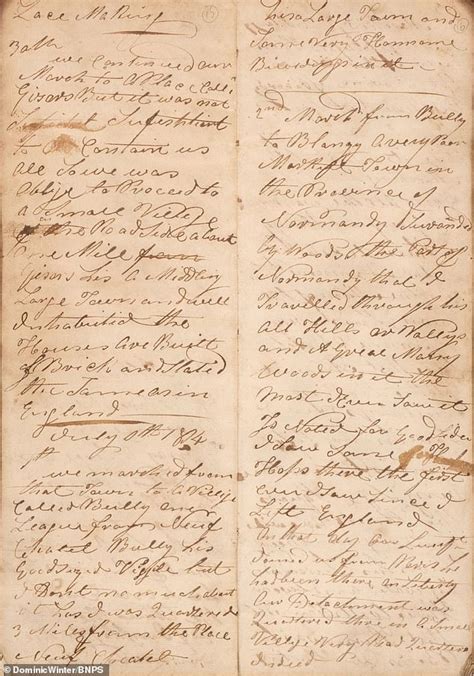 Lace Making
30th
we continued our
March to a Place Call
Gizors But it was not
Sufishent
to Contain us
All So we was
Oblige to Proceed to
a Small Village
the Road Side about
One Mile from
Gizors his a Middling
Large Town and well
Inhabitid the
Houses Are Built
of Brick and Slatid
the Same as in
England
July 1814
1st
we marchd from
that Town to a Village
Called Bully one
League from Neuf
Chatel Bully his
Good sized Village but
I Dont
it has I was Quartered
3 Miles from the Place
Neuf Chatel
his a Large Town and
Some Very Hansome
Buildings in it
2nd March from Bully
to Blangy a very Poor
Market Town in
the Province of
Normandy Surounded
by Woods the Part of
Normandy that I
Travelled through his
All Hills or Valleys
and A Great Many
Woods in it the
Most I Ever Saw it
Is Noted for Good Sider
I Saw Some
Hops there the first
Ever I Saw Since I
Left England
In that Day Our
Joined us from Paris he
had been there
Our Detachment was
Quartered there in a Small
Village Very Bad Quarters
Indeed
© DominicWinter/BNPS